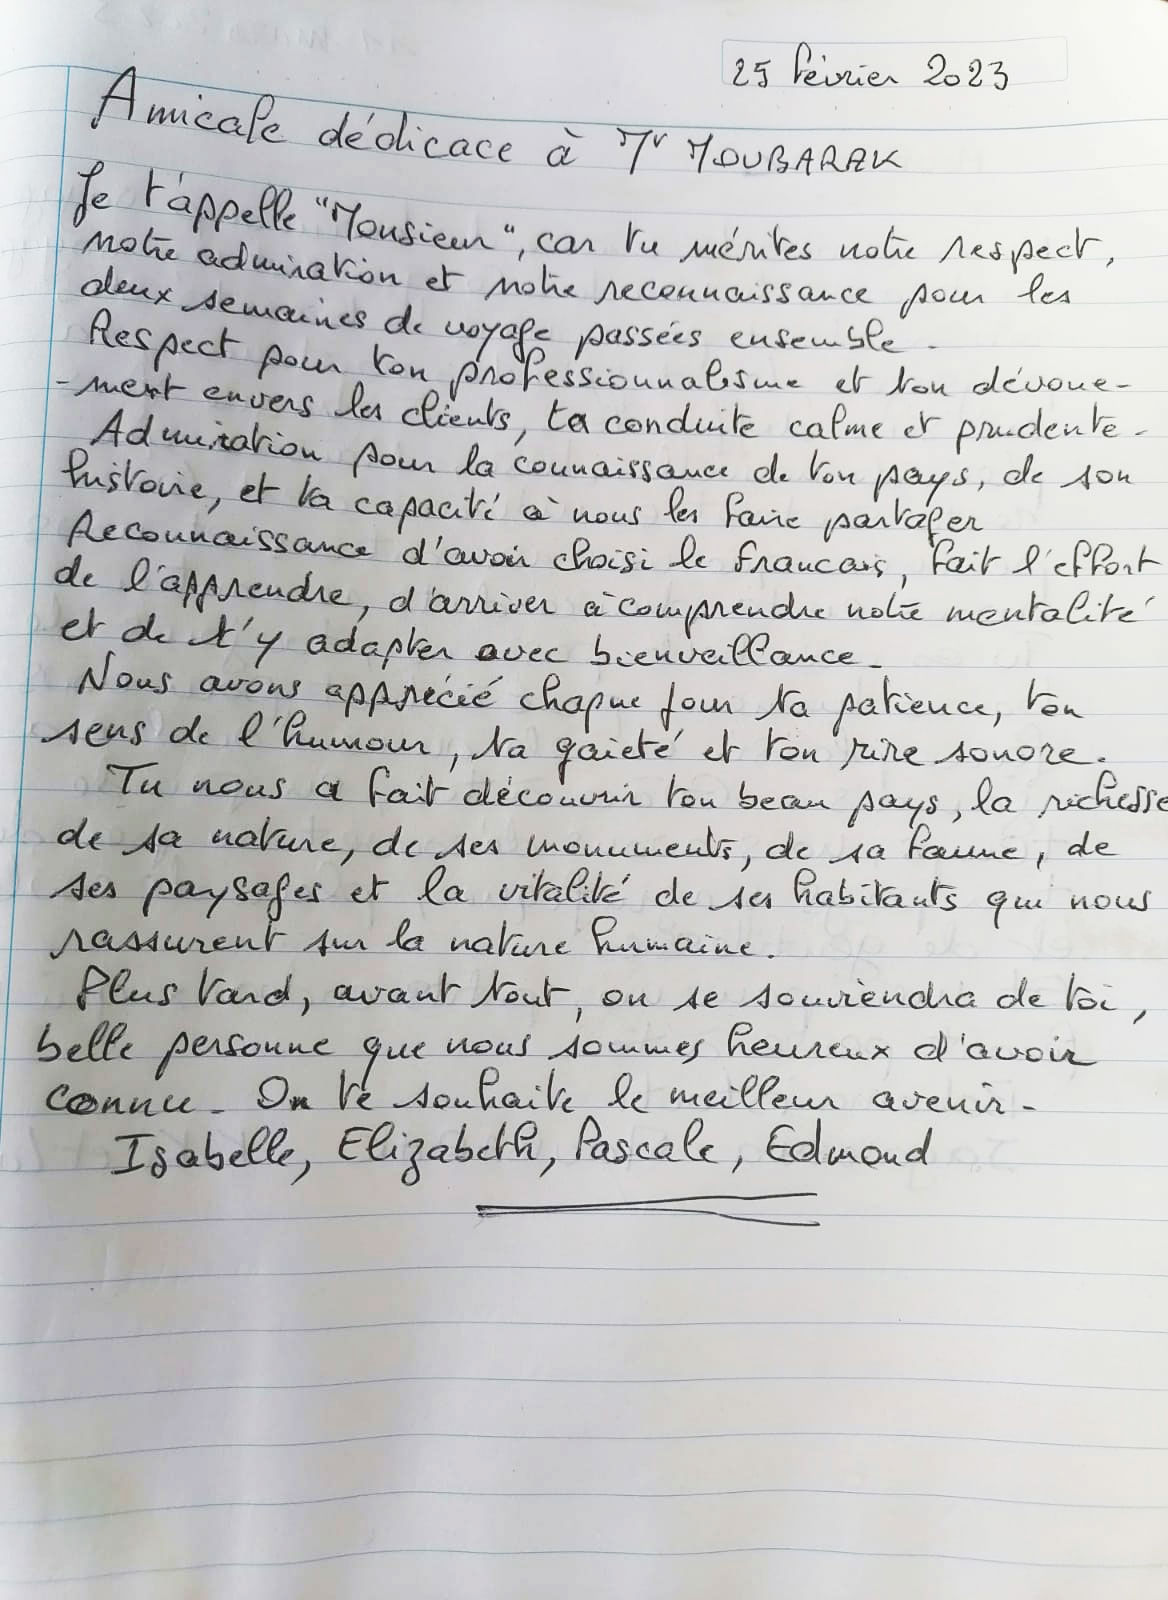 25 février 2023
Amicale dédicace à Mr MOUBARAK
Je t'appelle "Monsieur", car tu mérites notre respect,
notre admiration et notre reconnaissance pour les
deux semaines de voyage passées ensemble.
Respect pour ton professionnalisme et ton dévoue-
-ment envers les clients, ta conduite calme et prudente.
Admiration pour la connaissance de ton pays, de son
histoire, et ta capacité à nous les faire partager
Reconnaissance d'avoir choisi le francais, fait l'effort
de l'apprendre, d'arriver à comprendre notre mentalité
et de t'y adapter avec bienveillance.
Nous avons apprécié chaque jour ta patience, ton
sens de l'humour, ta gaieté et ton rire sonore.
Tu nous a fait découvrir ton beau pays, la richesse
de sa nature, de ses monuments, de sa faune, de
ses paysages et la vitalité de ses habitants qui nous
rassurent sur la nature humaine.
Plus tard, avant tout, on se souviendra de toi,
belle personne que nous sommes heureux d'avoir
connu. On te souhaite le meilleur avenir.
Isabelle, Elizabeth, Pascale, Edmond